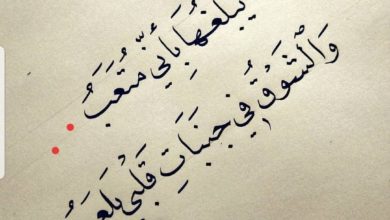 يُبلغُهَا بِأَنِّي مُتْعَبُ
وَالشَّوْقُ فِي جَنَبَاتِ قَلْبِي